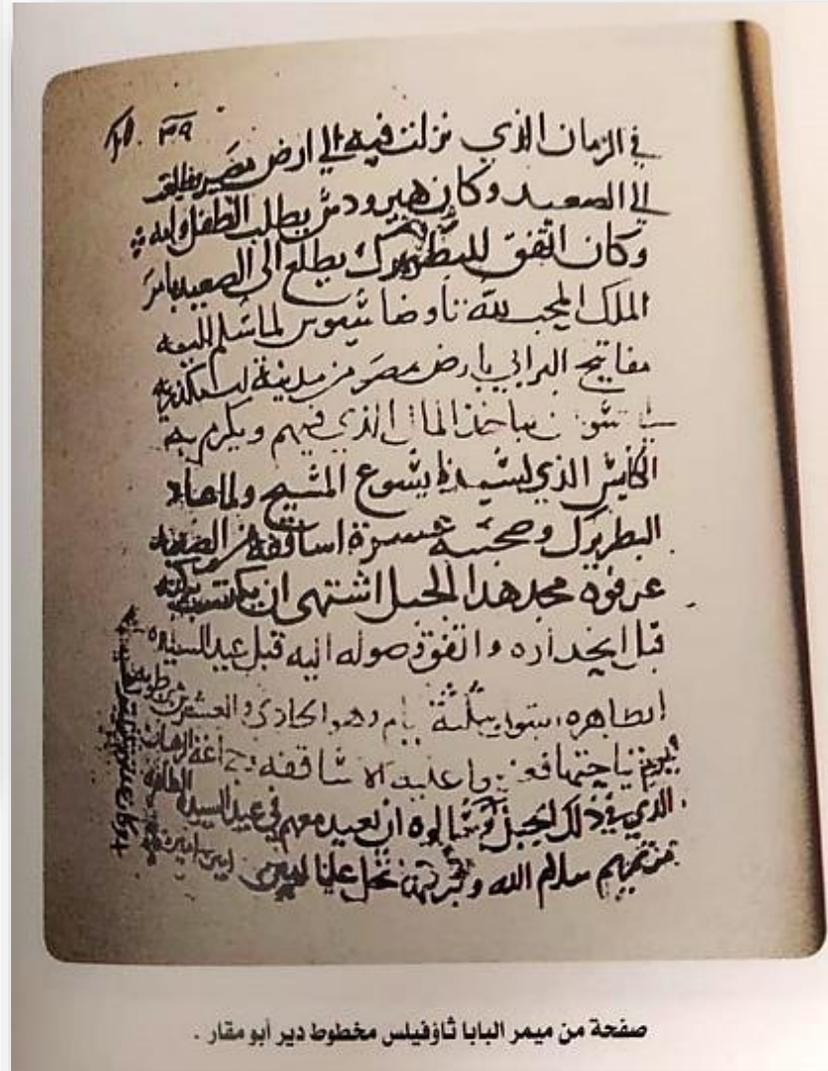 ٣٩
في الزمان الذي نزلت فيه الي ارض مصر
الي الصعيد وكان هيرودس يطلب الطفل وامه
وكان اتفق للبطريرك يطلع الى الصعيد بامر
الملك المحب لله تاوضاسيوس لما سلم اليه
مفاتيح البرابي بارض مصر من مدينة
ياخذ المال الذي فيهم ويكرم بهم
الكنايس الذي لسيدنا يسوع المسيح ولما عاد
البطريرك وصحبته عشرة اساقفة من الصعيد
عرفوه مجد هدا الجبل اشتهى ان
قبل انحداره واتفق وصوله اليه قبل عيد السيده
الطاهره بتلتة ايام وهو الحادي والعشرين
الاساقفه وجماعة الرهبان
الذي في ذلك الجبل وسالوه ان يعيد معهم في عيد السيده الطاهره
مرتمريم سلام الله وبركتها تحل علينا امين
صفحة من ميمر البابا ثاؤفيلس مخطوط دير أبو مقار .